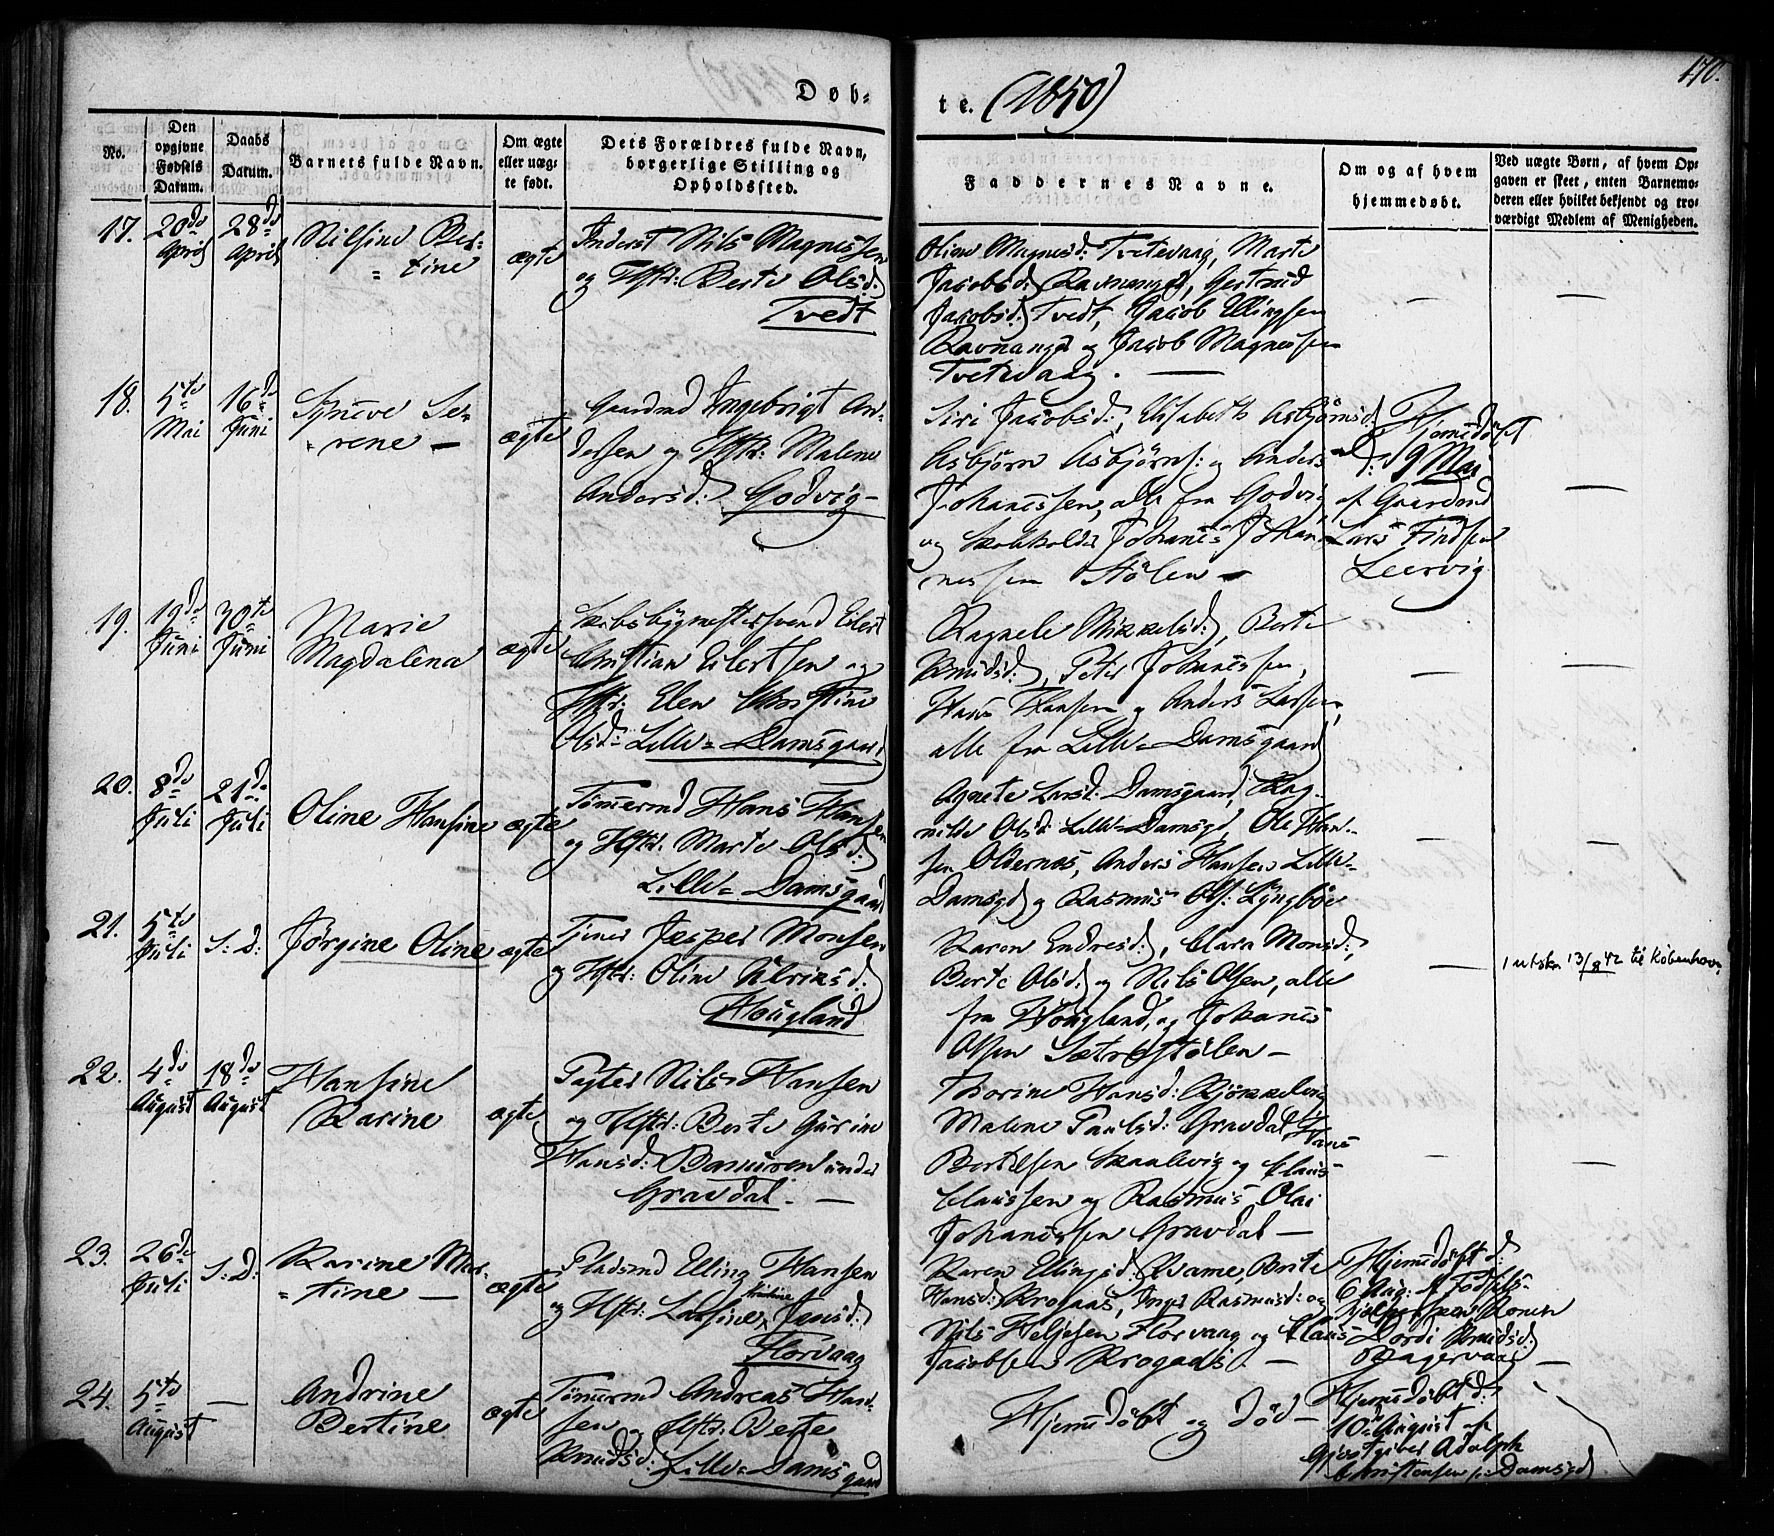 170.
Døb-
te. (1850)
No.
Den opgivne Fødsels Datum.
Daabs Datum.
Barnets fulde Navn.
Om ægte eller uæg-te født.
Dets Forældres fulde Navn, borgerlige Stilling og Opholdssted.
Faddernes Navne.
Om og af hvem hjemmedøbt.
Ved uægte Børn, af hvem Op-
gaven er skeet, enten Barnemo-
deren eller hvilket bekjendt og tro-
værdigt Medlem af Menigheden.
17.
20de April
28de April
Nilsine Ber-
tine
ægte
Inderst Nils Magnessen
og Hstr: Berte Olsd:
Tvedt
Oline Magnesd: Tvetevaag, Marte
Jacobsd: Ravnanger, Gertrud
Jacobsd: Tvedt, Jacob Ellingsen
Ravnanger og Jacob Magnessen
Tvetevaag. —
—
—
18.
5te Mai
16de Juni
Synneve Se-
rene —
ægte
Gaardmd Ingebrigt An-
dersen og Hstr: Malene
Andersd: Godvig —
Siri Jacobsd:, Elisabeth Asbjørnsd:
Asbjørn Asbjørns: og Anders
Johannessen, alle fra Godvig,
og Johannes Johan-
nessen Stølen —
Hjemmedøbt
d: 19 Mai
af Gaardmd
Lars Findsen
Leervig
—
19.
19de Juni
30te Juni
Marie
Magdalena
ægte
Skibsbygmestersvend Eilert
Christian Eilertsen og
Hstr: Elen Christine
Olsd: Lille-Damsgaard
Ragnele Mikkelsd:, Berte
Knudsd:, Peter Johannessen,
Hans Hansen og Anders Larsen,
alle fra Lille-Damsgaard
—
—
20.
8de Juli
21de Juli
Oline Hansine
ægte
Tømmermd Hans Hansen
og Hstr: Marte Olsd:
Lille-Damsgaard
Agnete Larsd: Damsgaard, Rag-
nilde Olsd: Lille-Damsgd, Ole Han-
sen Oldernes, Anders Hansen Lille-
Damsgd og Rasmus Ols: Lyngbøe
—
—
21.
5te Juli
S: D:
Jørgine Oline
ægte
Tjener Jesper Monsen
og Hstr: Oline Ulriksd:
Hougland
Karen Endresd:, Clara Monsd:,
Berte Olsd: og Nils Olsen, alle
fra Hougland, og Johannes
Olsen Sætrestølen —
—
1 utskr. 13/8 42 til København
22.
4de August
18de August
Hansine
Karine
ægte
Pagter Nils Hansen
og Hstr: Berte Gurine
Hansd: under
Gravdal. —
Thorine Hansd: Kjøkkelvig
Malene Paulsd: Gravdal, Hans
Bertelsen Skaalevig og Claus
Claussen og Rasmus Olai
Johannessen Gravdal —
—
—
23.
26de Juli
S: D:
Karine Mar-
tine —
ægte
Pladsmd Elling Hansen
og Hstr: Larsine Jansd:
Florvaag
Karen Ellingsd: Qvame, Berte
Hansd: Krogaas, Inger Rasmusd: og
Nils Heljesen Florvaag og Claus
Jacobsen Krogaas. —
Hjemmedøbt d:
6 Aug: af Fødsels-
hjelpersken Konen
Dordi Knudsd:
Hagervaag
—
24.
5te August
—
Andrine
Bertine
ægte
Tømmermd Andreas Han-
sen og Hstr: Berte
Knudsd: Lille-Damsgaard
Hjemmedøbt og død —
Hjemmedøbt d:
10de August af
Gjestgiver Adolph
Christensen Damsgd